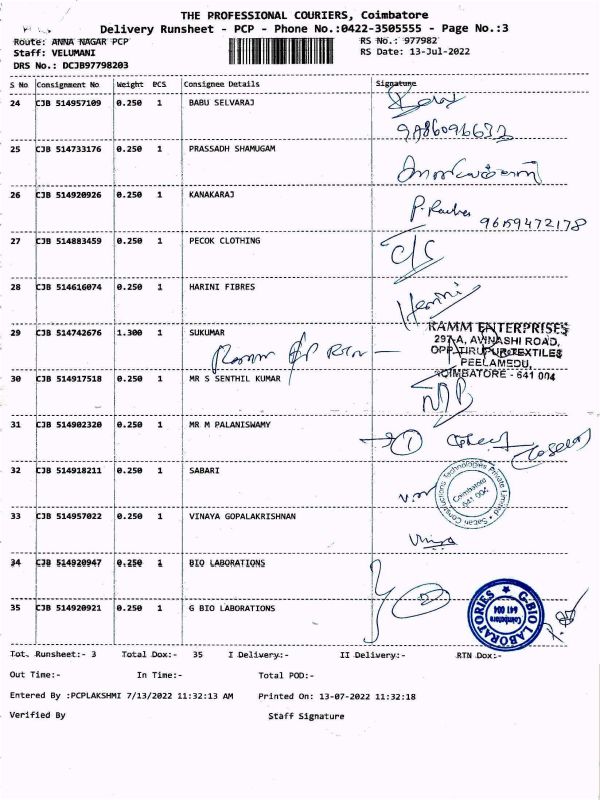 THE PROFESSIONAL COURIERS, Coimbatore
Delivery Runsheet - PCP - Phone No.:0422-3505555 - Page No.:3
Route: ANNA NAGAR PCP RS No.: 977982
Staff: VELUMANI RS Date: 13-Jul-2022
DRS No.: DCJB97798203
S No Consignment No Weight PCS Consignee Details Signature
24 CJB 514957109 0.250 1 BABU SELVARAJ
9786096632
25 CJB 514733176 0.250 1 PRASSADH SHAMUGAM
26 CJB 514920926 0.250 1 KANAKARAJ
9659472178
27 CJB 514883459 0.250 1 PECOK CLOTHING
C/S
28 CJB 514616074 0.250 1 HARINI FIBRES
Harini
RAMM ENTERPRISES
29 CJB 514742676 1.300 1 SUKUMAR 297-A, AVINASHI ROAD,
OPP.TIRUPUR TEXTILES
PEELAMEDU,
COIMBATORE - 641 004
30 CJB 514917518 0.250 1 MR S SENTHIL KUMAR
31 CJB 514902320 0.250 1 MR M PALANISWAMY
32 CJB 514918211 0.250 1 SABARI
Constructions Technologies Private Limited
Coimbatore
641 004
33 CJB 514957022 0.250 1 VINAYA GOPALAKRISHNAN
34 CJB 514920947 0.250 1 BIO LABORATIONS
35 CJB 514920921 0.250 1 G BIO LABORATIONS
G-BIO LABORATORIES
Coimbatore
641 004
Tot. Runsheet:- 3 Total Dox:- 35 I Delivery:- II Delivery:- RTN Dox:-
Out Time:- In Time:- Total POD:-
Entered By :PCPLAKSHMI 7/13/2022 11:32:13 AM Printed On: 13-07-2022 11:32:18
Verified By Staff Signature